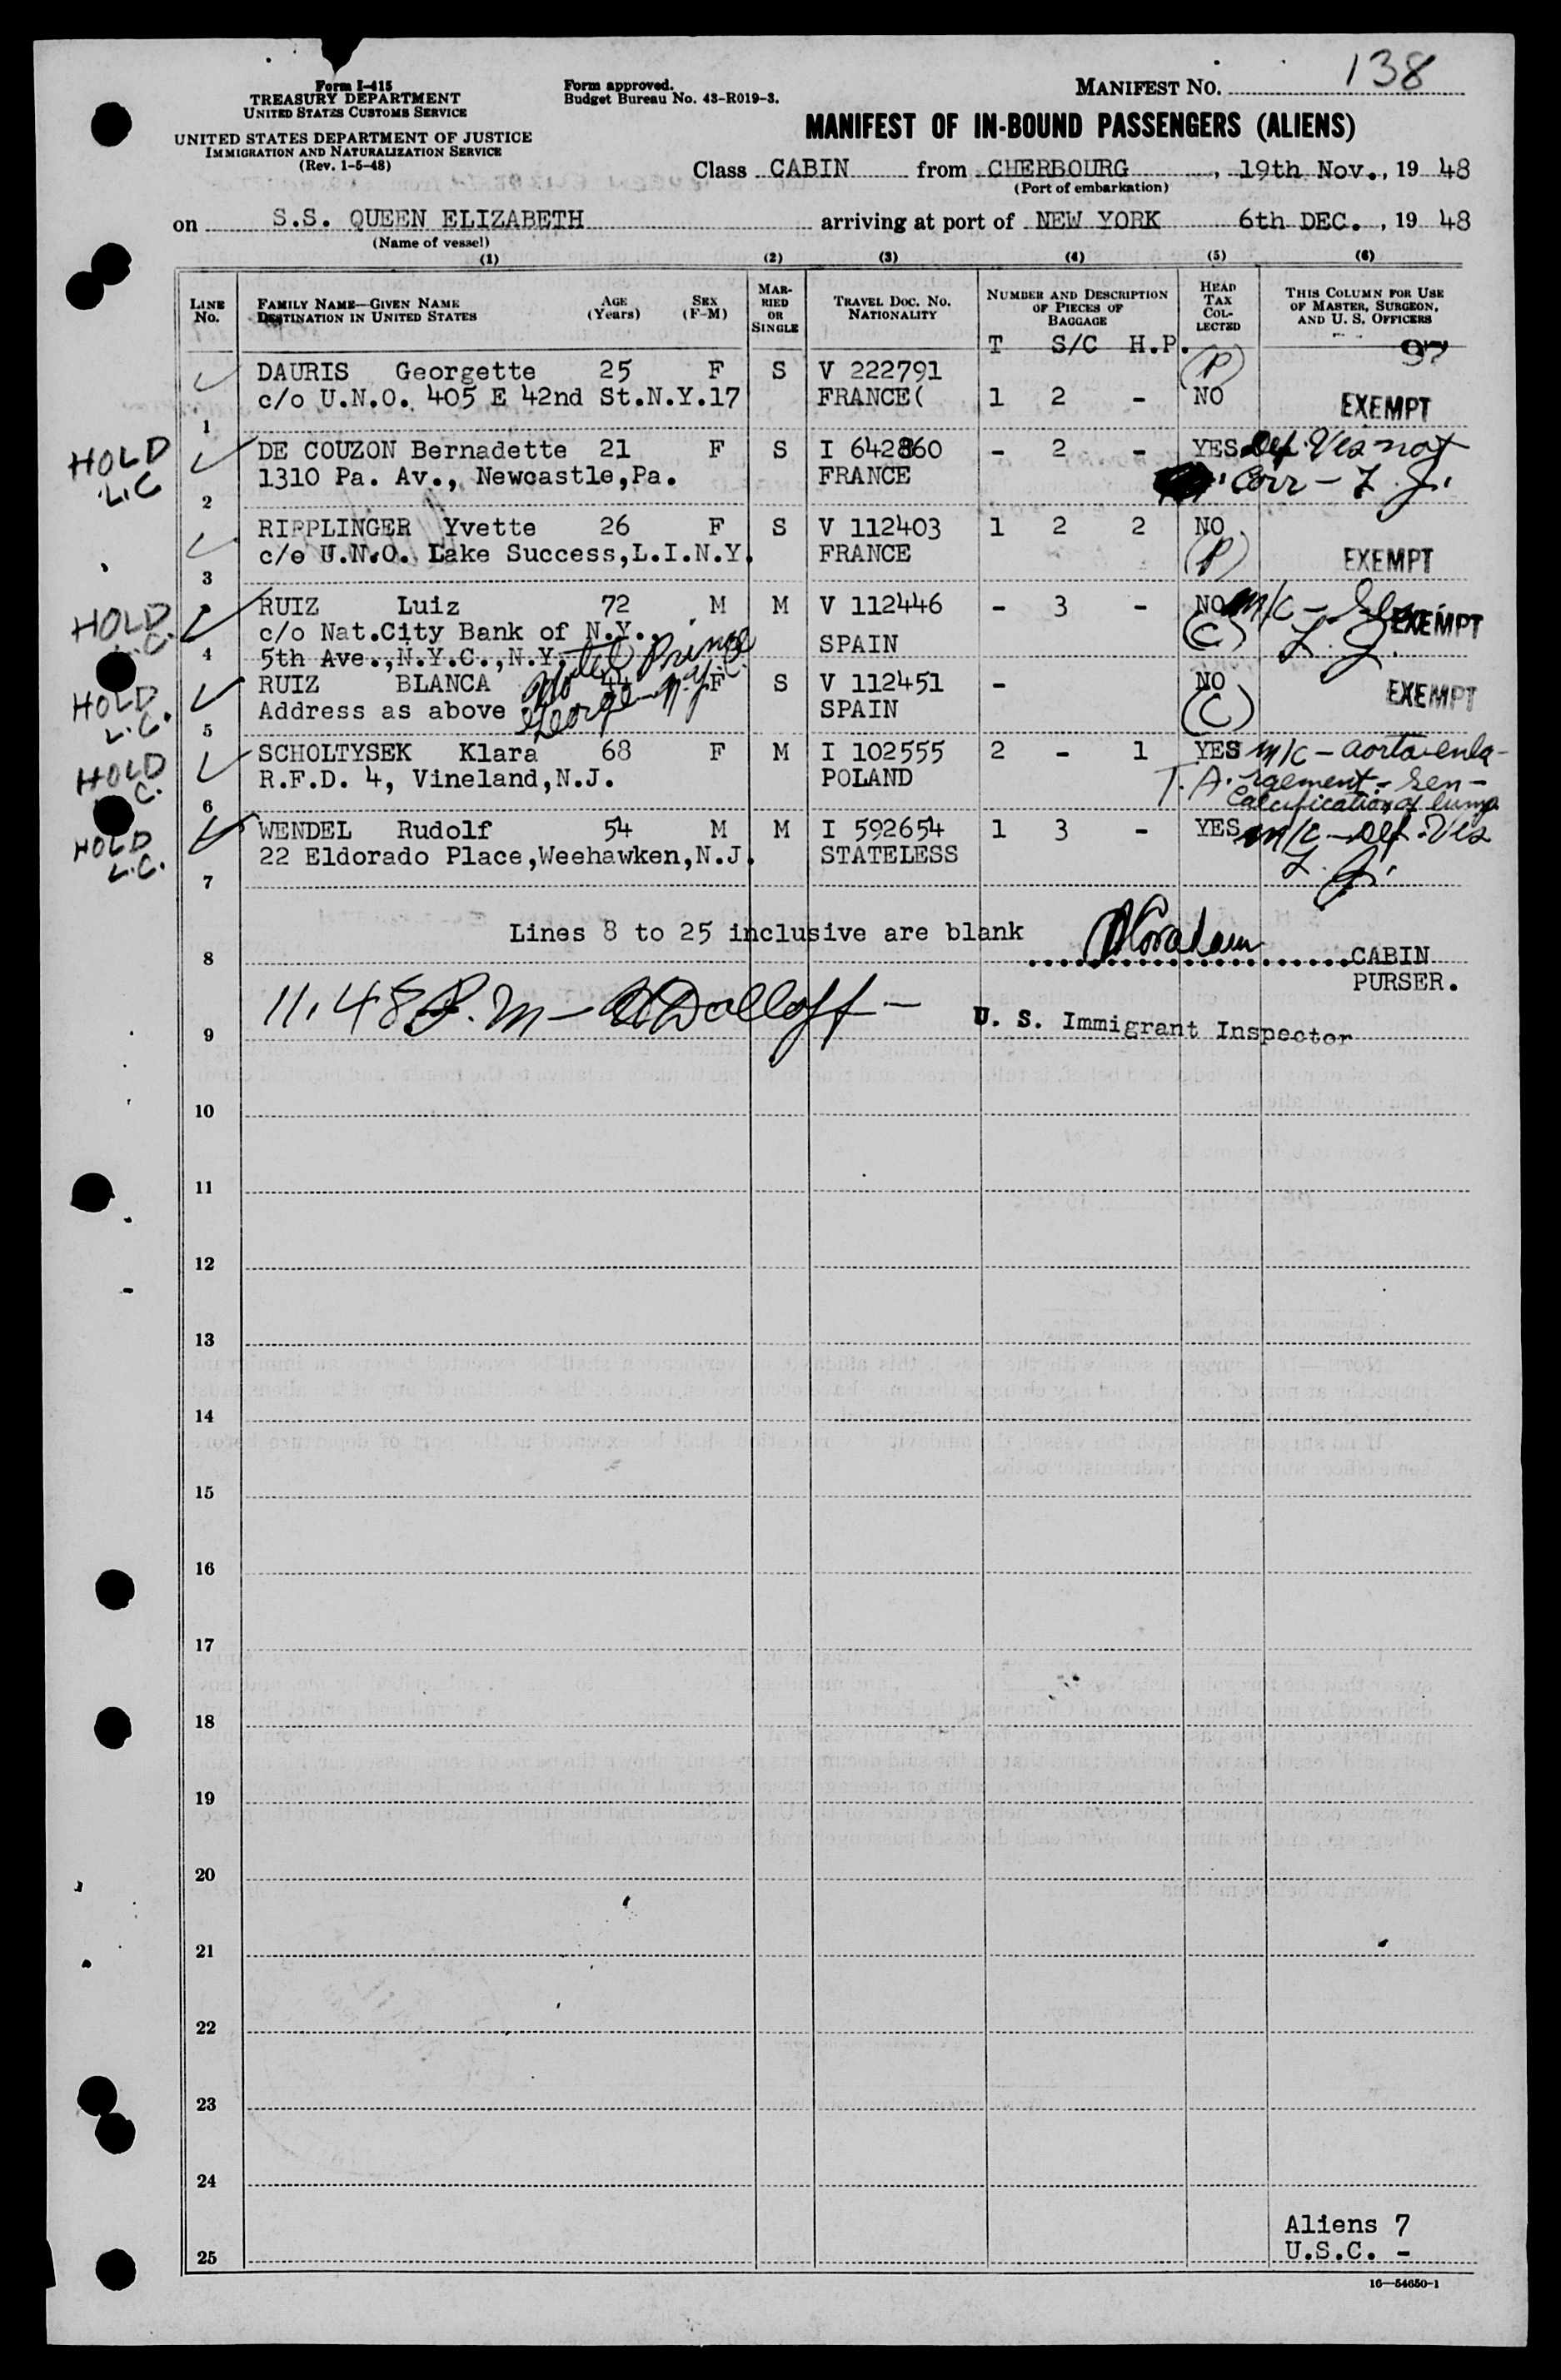 Form I-415
TREASURY DEPARTMENT
UNITED STATES CUSTOMS SERVICE
UNITED STATES DEPARTMENT OF JUSTICE
IMMIGRATION AND NATURALIZATION SERVICE
(Rev. 1-5-48)
Form approved.
Budget Bureau No. 43-R019-3.
MANIFEST NO. 138
MANIFEST OF IN-BOUND PASSENGERS (ALIENS)
Class CABIN from CHERBOURG, 19th Nov., 19 48
(Port of embarkation)
on S.S. QUEEN ELIZABETH arriving at port of NEW YORK 6th DEC., 19 48
(Name of vessel)
(1) (2) (3) (4) (5) (6)
LINE NO.
FAMILY NAME—GIVEN NAME
DESTINATION IN UNITED STATES
AGE (Years)
SEX (F-M)
MARRIED OR SINGLE
TRAVEL DOC. NO.
NATIONALITY
NUMBER AND DESCRIPTION OF PIECES OF BAGGAGE
T S/C H.P.
HEAD TAX COLLECTED
THIS COLUMN FOR USE OF MASTER, SURGEON, AND U. S. OFFICERS
97
DAURIS Georgette 25 F S V 222791 (P)
c/o U.N.O. 405 E 42nd St.N.Y.17 FRANCE( 1 2 - NO EXEMPT
1
HOLD L.C. DE COUZON Bernadette 21 F S I 642860 - 2 - YES Def. Vis not
1310 Pa. Av., Newcastle,Pa. FRANCE Corr - L. J.
2
RIPPLINGER Yvette 26 F S V 112403 1 2 2 NO
c/o U.N.O. Lake Success,L.I.N.Y. FRANCE (P) EXEMPT
3
HOLD C. RUIZ Luiz 72 M M V 112446 - 3 - NO M/C - Sen.
c/o Nat.City Bank of N.Y., (C) L. J. EXEMPT
4 5th Ave.,N.Y.C.,N.Y. SPAIN
Hotel Prince George - N.Y.C.
HOLD L.C. RUIZ BLANCA 44 F S V 112451 - NO EXEMPT
Address as above SPAIN (C)
5
HOLD C. SCHOLTYSEK Klara 68 F M I 102555 2 - 1 YES M/C - aorta enla-
R.F.D. 4, Vineland,N.J. POLAND T. A. rgement - Sen -
6 Calcification of lungs
HOLD L.C. WENDEL Rudolf 54 M M I 592654 1 3 - YES M/C - Def. Vis
22 Eldorado Place,Weehawken,N.J. STATELESS L. J.
7
Lines 8 to 25 inclusive are blank
8 CABIN
PURSER.
11.48 P.M -
9 U. S. Immigrant Inspector
10
11
12
13
14
15
16
17
18
19
20
21
22
23
24
Aliens 7
25 U.S.C. -
16—54650-1